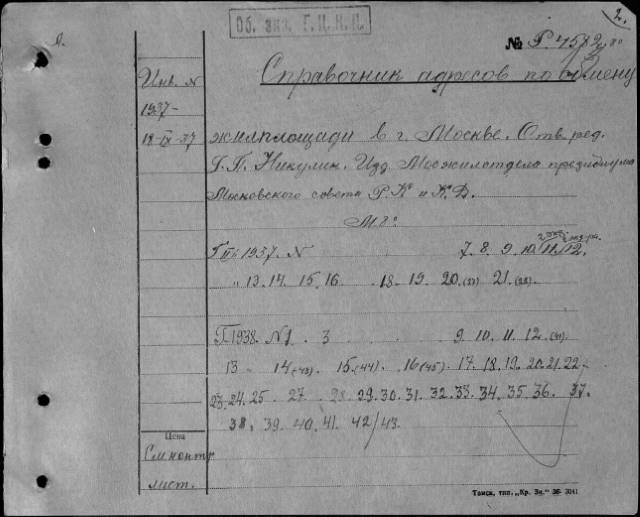 2.
Об. экз. Г.Ц.К.П.
№ Р 4572/8°
Справочник адресов по обмену
Инв. N
1937-
18-IX-37
жилплощади в г. Москве. Отв. ред.
П. Никулин. Изд. Мосжилотдела президиума
Московского совета Р.К. и К.Д.
М 8°
1937. N 7. 8. 9. 10. 11. 12.
" 13. 14. 15. 16. 18. 19. 20. 21.
1938. N1. 3 9. 10. 11. 12
13 14 (43). 15 (44). 16 (45). 17. 18. 19. 20. 21. 22.
23. 24. 25. 27. 28. 29. 30. 31. 32. 33. 34. 35. 36. 37.
38. 39. 40. 41. 42/43.
Цена
См контр
лист.
Томск, тип. „Кр. Зн." 36 3041